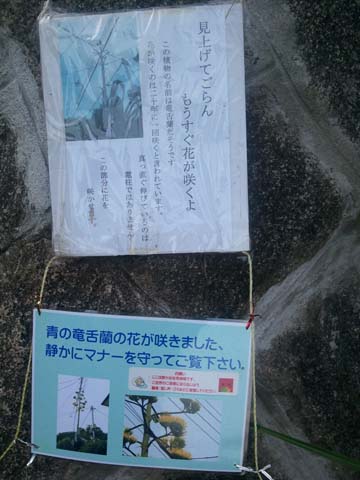 見上げてごらん
もうすぐ花が咲くよ
この植物の名前は竜舌蘭だそうです
花が咲くのは二十年に一回咲くと言われています。
真っ直ぐ伸びているのは
電柱ではありません
この部分に花を
咲かせます
青の竜舌蘭の花が咲きました、
静かにマナーを守ってご覧下さい。